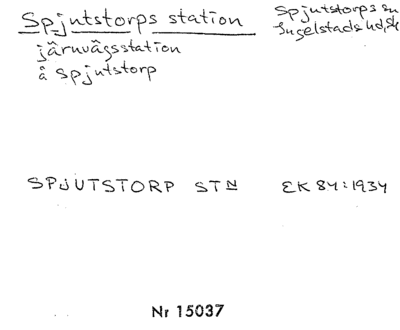 Spjutstorps station
järnvägsstation
å Spjutstorp
Spjutstorps sn
Ingelstads hd, Sk
SPJUTSTORP STN
EK 84:1934
Nr 15037